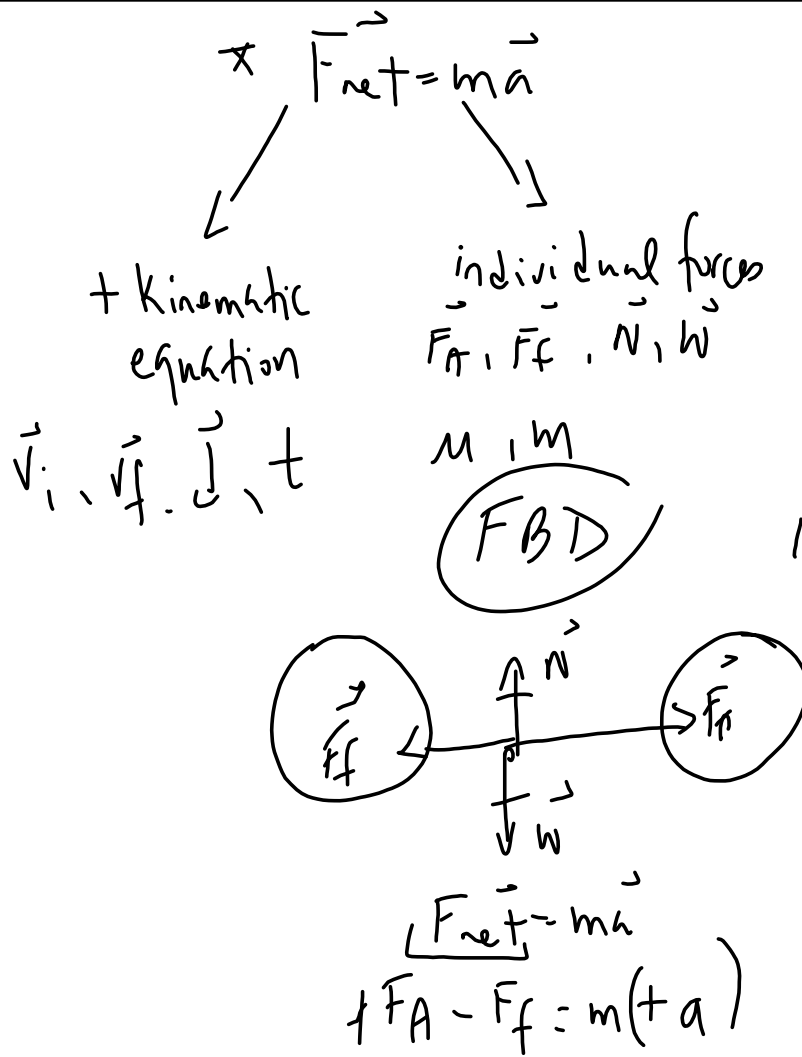 * F⃗net = ma⃗
+ kinematic
equation
v⃗i, v⃗f, d⃗, t
individual forces
F⃗A, F⃗f, N⃗, W⃗
μ, m
FBD
N⃗
F⃗f
F⃗A
W⃗
F⃗net = ma⃗
+FA - Ff = m(+a)